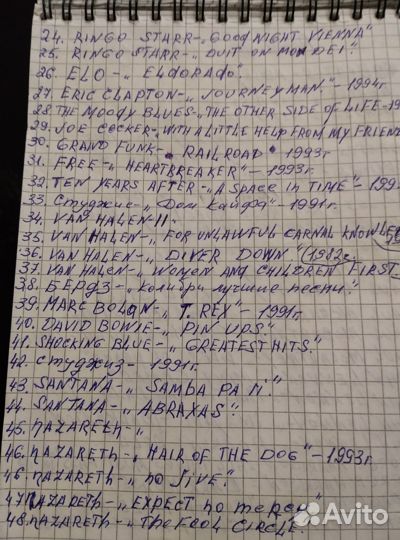 24. RINGO STARR-„GOOD NIGHT VIENNA"
25. RINGO STARR-„DUIT ON MON DEI".
26. ELO-„ELdORAdO".
27. ERIC CLAPTON-„JOURNEYMAN."-1994г
28. THE MOODY BLUES-„THE OTHER SIDE OF LIFE-19
29. JOE COCKER-WITH A LITTLE HELP FROM MY FRIEN
30. GRAND FUNK-RAILROAD 1993г
31. FREE-„HEARTBREAKER"-1993г.
32. TEN YEARS AFTER-„A SPACE IN TIME"-199
33. Студжис-„Дом Кайфа"-1991г.
34. VAN HALEN-II.
35. VAN HALEN-„FOR UNLAWFUL CARNAL KNOWLE
36. VAN HALEN-„DIVER DOWN" (1982г.
37. VAN HALEN-„WOMEN AND CHILDREN FIRST
38. БЕРДЗ-„Колибри лучшие песни."
39. MARC BOLAN-„T. REX"-1991г.
40. DAVID BOWIE-„PIN UPS"
41. SHOCKING BLUE-„GREATEST HITS."
42. Студжиз-1991г.
43. SANTANA-„SAMBA PA TI."
44. SANTANA-„ABRAXAS".
45. NAZARETH-„
46. NAZARETh-„HAIR OF THE DOG"-1993г.
46. NAZARETh-„no JIVE".
47. NAZARETh-„EXPECT no mercy"
48. NAZARETh-„The Fool CIRCLE."
Avito